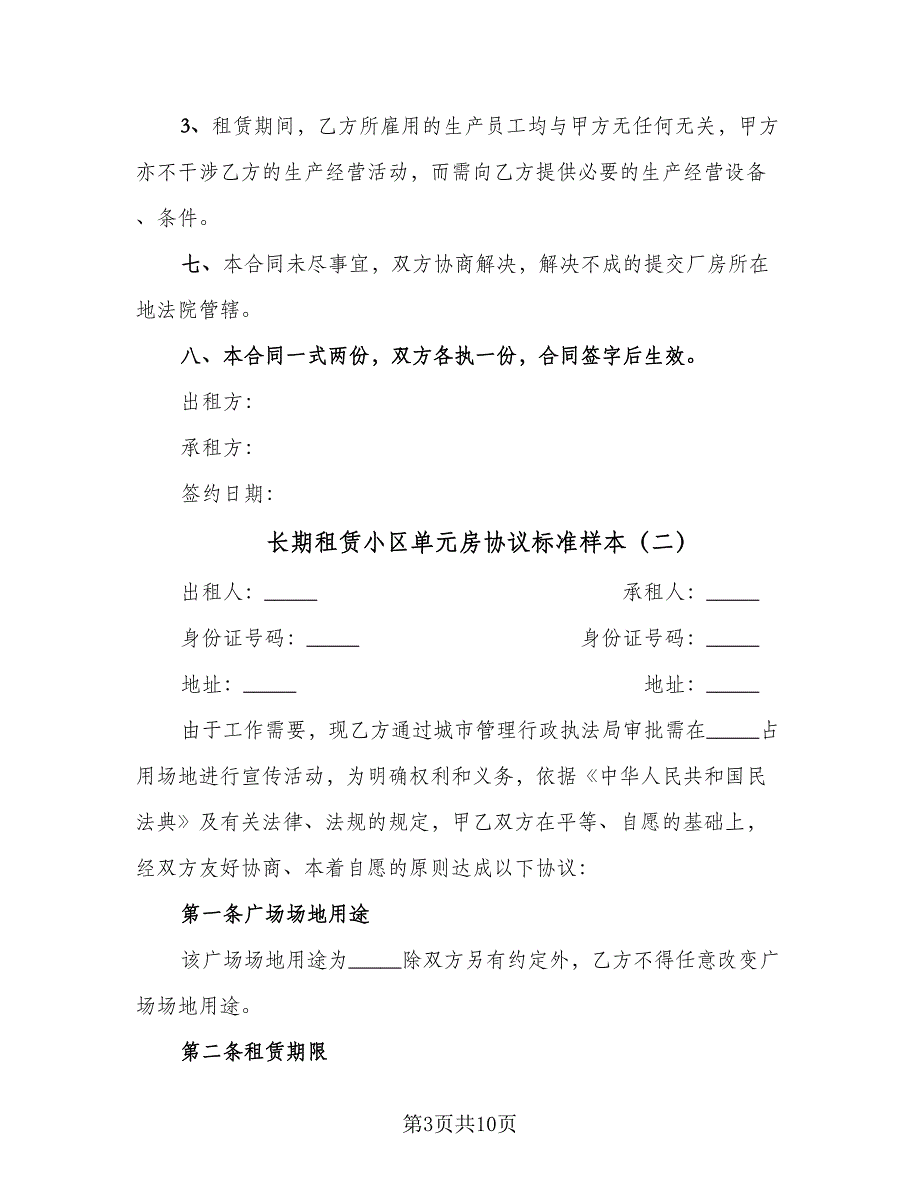 3、租赁期间，乙方所雇用的生产员工均与甲方无任何无关，甲方
亦不干涉乙方的生产经营活动，而需向乙方提供必要的生产经营设备
、条件。
七、本合同未尽事宜，双方协商解决，解决不成的提交厂房所在
地法院管辖。
八、本合同一式两份，双方各执一份，合同签字后生效。
出租方：
承租方：
签约日期：
长期租赁小区单元房协议标准样本（二）
出租人：_____ 承租人：_____
身份证号码：_____ 身份证号码：_____
地址：_____ 地址：_____
由于工作需要，现乙方通过城市管理行政执法局审批需在_____占
用场地进行宣传活动，为明确权利和义务，依据《中华人民共和国民
法典》及有关法律、法规的规定，甲乙双方在平等、自愿的基础上，
经双方友好协商、本着自愿的原则达成以下协议：
第一条广场场地用途
该广场场地用途为_____除双方另有约定外，乙方不得任意改变广
场场地用途。
第二条租赁期限
第3页共10页